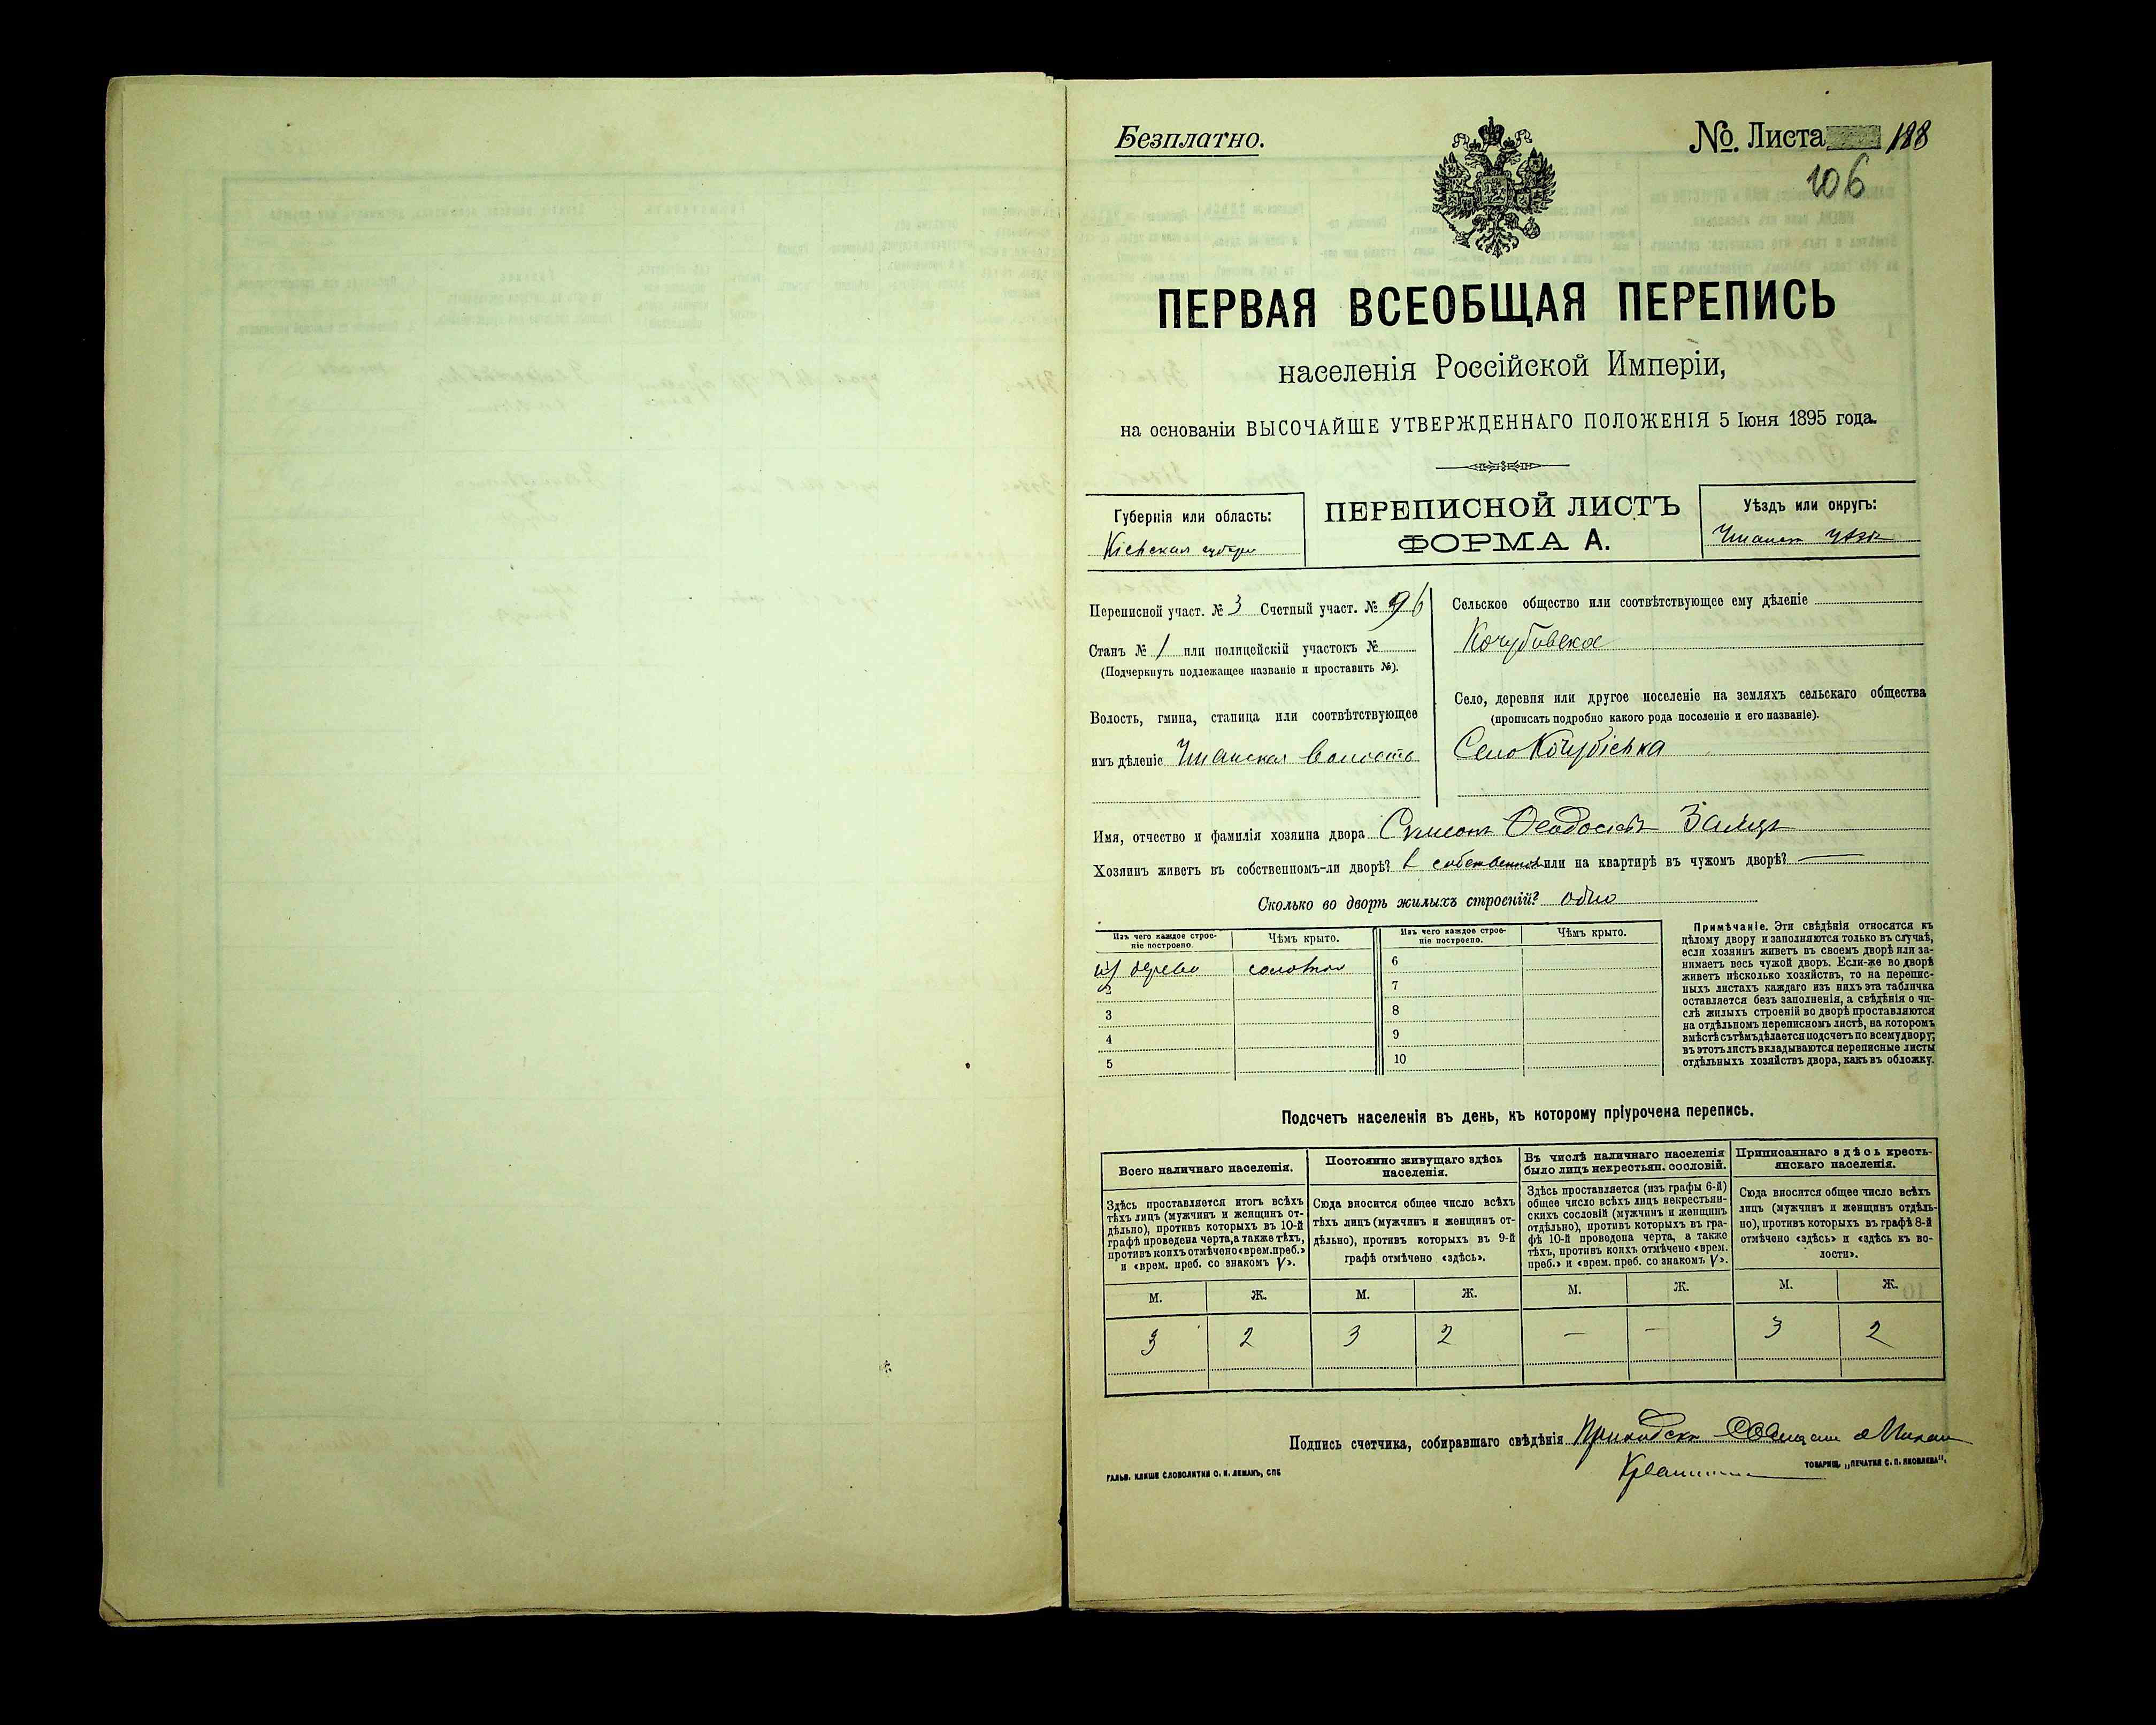 Безплатно.
№. Листа 188
106
ПЕРВАЯ ВСЕОБЩАЯ ПЕРЕПИСЬ
населенія Россійской Имперіи,
на основаніи ВЫСОЧАЙШЕ УТВЕРЖДЕННАГО ПОЛОЖЕНІЯ 5 Іюня 1895 года.
Губернія или область:
Кіевская губер
ПЕРЕПИСНОЙ ЛИСТЪ
ФОРМА А.
Уѣздъ или округъ:
Переписной участ. № 3 Счетный участ. № 96
Станъ № 1 или полицейскій участокъ №
(Подчеркнуть подлежащее названіе и проставить №).
Волость, гмина, станица или соотвѣтствующее
имъ дѣленіе Уманская волость
Сельское общество или соотвѣтствующее ему дѣленіе
Кочубивское
Село, деревня или другое поселеніе на земляхъ сельскаго общества
(прописать подробно какого рода поселеніе и его названіе).
Село Кочубіевка
Имя, отчество и фамилія хозяина двора
Хозяинъ живетъ въ собственномъ-ли дворѣ? в собственном или на квартирѣ въ чужомъ дворѣ? —
Сколько во дворѣ жилыхъ строеній? одно
Изъ чего каждое строе-
ніе построено.
Чѣмъ крыто.
Изъ чего каждое строе-
ніе построено.
Чѣмъ крыто.
дерева соломою
2
3
4
5
6
7
8
9
10
Примѣчаніе. Эти свѣдѣнія относятся къ
цѣлому двору и заполняются только въ случаѣ,
если хозяинъ живетъ въ своемъ дворѣ или за-
нимаетъ весь чужой дворъ. Если-же во дворѣ
живетъ нѣсколько хозяйствъ, то на перепис-
ныхъ листахъ каждаго изъ нихъ эта табличка
оставляется безъ заполненія, а свѣдѣнія о чи-
слѣ жилыхъ строеній во дворѣ проставляются
на отдѣльномъ переписномъ листѣ, на которомъ
вмѣстѣ съ тѣмъ дѣлается подсчетъ по всему двору;
въ этотъ листъ вкладываются переписные листы
отдѣльныхъ хозяйствъ двора, какъ въ обложку.
Подсчетъ населенія въ день, къ которому пріурочена перепись.
Всего наличнаго населенія.
Здѣсь проставляется итогъ всѣхъ
тѣхъ лицъ (мужчинъ и женщинъ от-
дѣльно), противъ которыхъ въ 10-й
графѣ проведена черта, а также тѣхъ,
противъ коихъ отмѣчено «врем. преб.»
и «врем. преб. со знакомъ V».
Постоянно живущаго здѣсь
населенія.
Сюда вносится общее число всѣхъ
тѣхъ лицъ (мужчинъ и женщинъ от-
дѣльно), противъ которыхъ въ 9-й
графѣ отмѣчено «здѣсь».
Въ числѣ наличнаго населенія
было лицъ некрестьян. сословій.
Здѣсь проставляется (изъ графы 6-й)
общее число всѣхъ лицъ некрестьян-
скихъ сословій (мужчинъ и женщинъ
отдѣльно), противъ которыхъ въ гра-
фѣ 10-й проведена черта, а также
тѣхъ, противъ коихъ отмѣчено «врем.
преб.» и «врем. преб. со знакомъ V».
Приписаннаго здѣсь кресть-
янскаго населенія.
Сюда вносится общее число всѣхъ
лицъ (мужчинъ и женщинъ отдѣль-
но), противъ которыхъ въ графѣ 8-й
отмѣчено «здѣсь» и «здѣсь къ во-
лости».
М. Ж. М. Ж. М. Ж. М. Ж.
3 2 3 2 — — 3 2
Подпись счетчика, собиравшаго свѣдѣнія
ГАЛЬВ. КЛИШЕ СЛОВОЛИТНИ О. И. ЛЕМАНЪ, СПБ
ТОВАРИЩ. „ПЕЧАТНЯ С. П. ЯКОВЛЕВА".